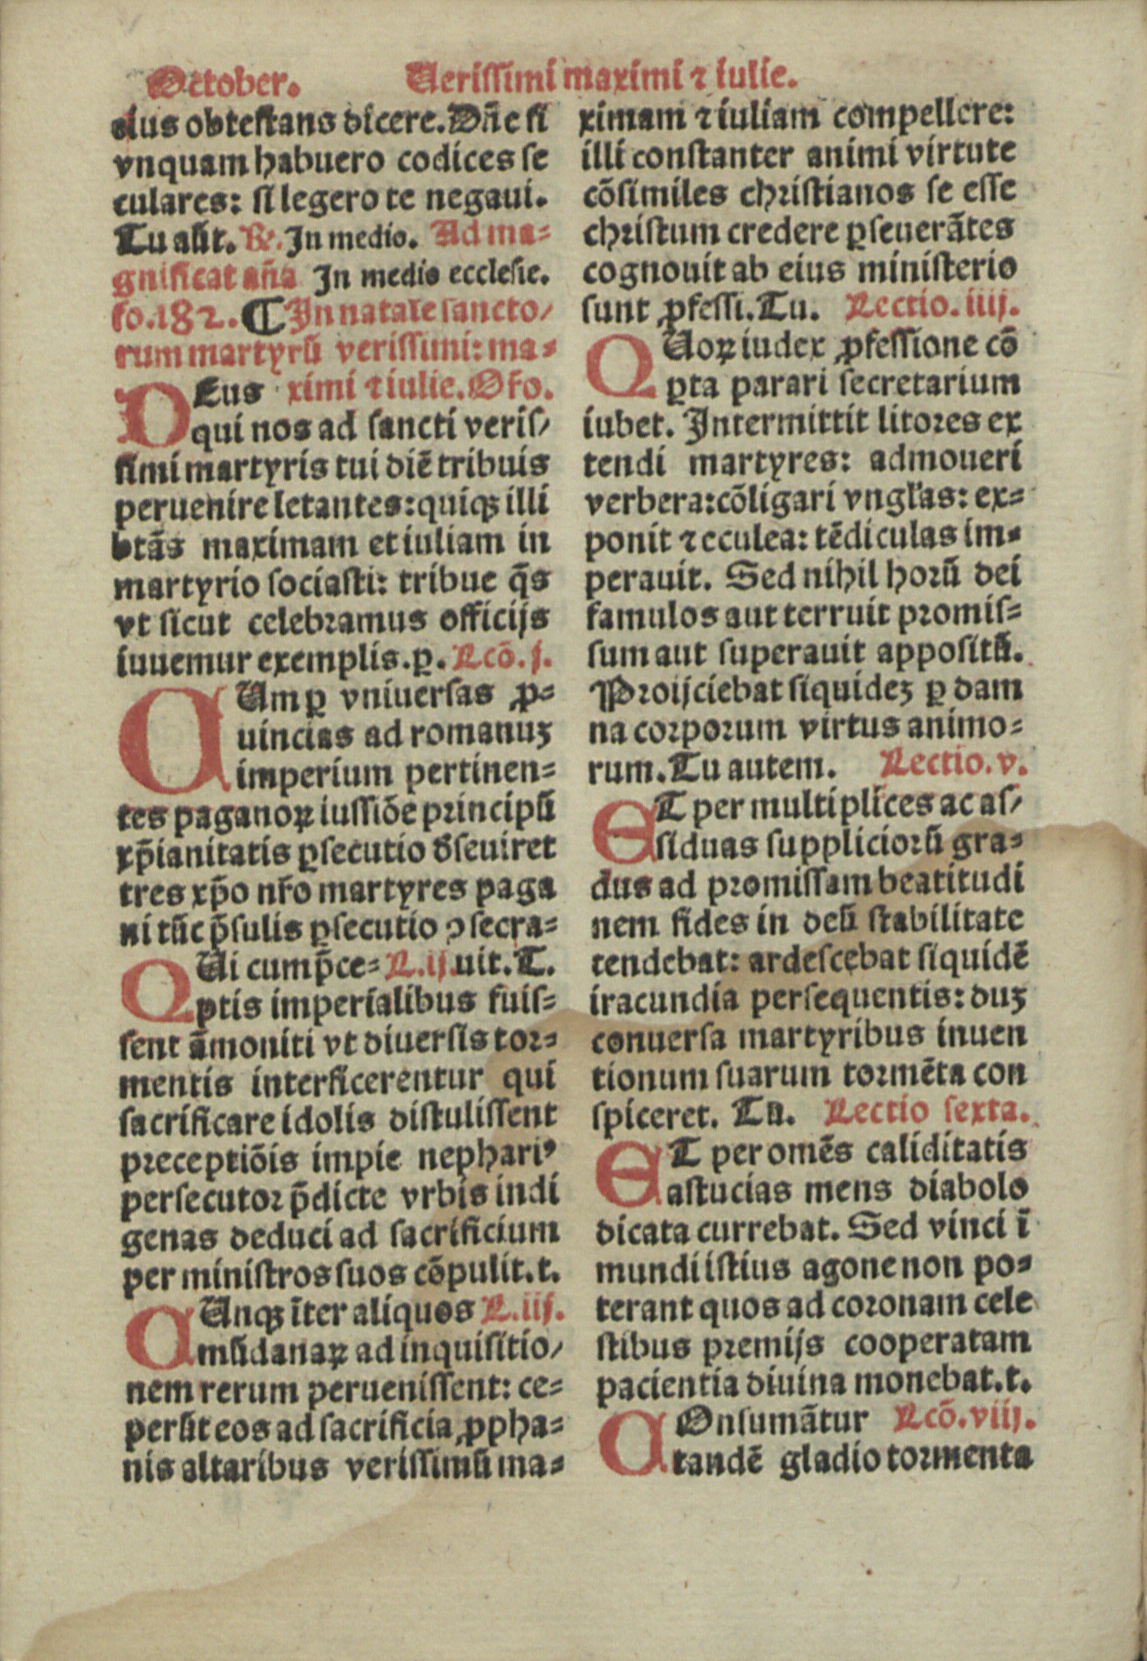 October. Uerissimi maximi ⁊ iulie.
eius obtestans dicere. Dñe si
vnquam habuero codices se
culares: si legero te negaui.
Tu aūt. ℟. In medio. Ad ma-
gnificat aña In medio ecclesie.
fo.182. ¶ In natale sancto/
rum martyrū verissimi: ma-
DEus ximi ⁊ iulie. Oŕo.
qui nos ad sancti veris/
simi martyris tui diē tribuis
peruenire letantes: quiqꝫ illi
btās maximam et iuliam in
martyrio sociasti: tribue q̄s
vt sicut celebramus officijs
iuuemur exemplis. ꝑ. Lcō. j.
CUm ꝑ vniuersas ꝓ-
uincias ad romanuꝫ
imperium pertinen-
tes paganoꝝ iussiōe principū
xp̄ianitatis ꝑsecutio d̄seuiret
tres xp̄o nr̄o martyres paga
ni tūc p̄sulis ꝑsecutio ꝯsecra-
QUi cum p̄ce- L. ij. uit. T.
ptis imperialibus fuis-
sent āmoniti vt diuersis tor-
mentis interficerentur qui
sacrificare idolis distulissent
preceptiōis impie nephariꝰ
persecutor p̄dicte vrbis indi
genas deduci ad sacrificium
per ministros suos cōpulit. t.
CUnqꝫ īter aliquos L. iij.
mūdanaꝝ ad inquisitio/
nem rerum peruenissent: ce-
perūt eos ad sacrificia ꝓpha-
nis altaribus verissimū ma-
ximam ⁊ iuliam compellere:
illi constanter animi virtute
cōsimiles christianos se esse
christum credere ꝑseuerātes
cognouit ab eius ministerio
sunt ꝓfessi. Tu. Lectio. iiij.
QUoꝝ iudex ꝓfessione cō
ꝑta parari secretarium
iubet. Intermittit litores ex
tendi martyres: admoueri
verbera: cōligari vngľas: ex-
ponit ⁊ eculea: tēdiculas im-
perauit. Sed nihil horū dei
famulos aut terruit promis-
sum aut superauit appositū.
Proijciebat siquideꝫ ꝑ dam
na corporum virtus animo-
rum. Tu autem. Lectio. v.
ET per multiplices ac as/
siduas suppliciorū gra-
dus ad promissam beatitudi
nem fides in deū stabilitate
tendebat: ardescebat siquidē
iracundia persequentis: duꝫ
conuersa martyribus inuen
tionum suarum tormēta con
spiceret. Tu. Lectio sexta.
ET per omēs caliditatis
astucias mens diabolo
dicata currebat. Sed vinci ī
mundi istius agone non po-
terant quos ad coronam cele
stibus premijs cooperatam
pacientia diuina monebat. t.
COnsumātur Lcō. viij.
tandē gladio tormenta